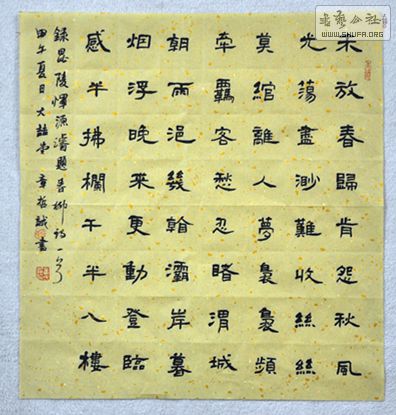 書藝公社
WWW.SHUFA.ORG
未放春歸肯怨秋風
光蕩盡渺難收絲絲
莫綰離人夢裊裊頻
牽羈客愁忍睹渭城
朝雨浥幾翰灞岸暮
烟浮晚來更動登臨
感半拂欄干半入樓
錄毘陵惲源濬題春柳詩一首
甲午夏日大喆堂章哲誠書